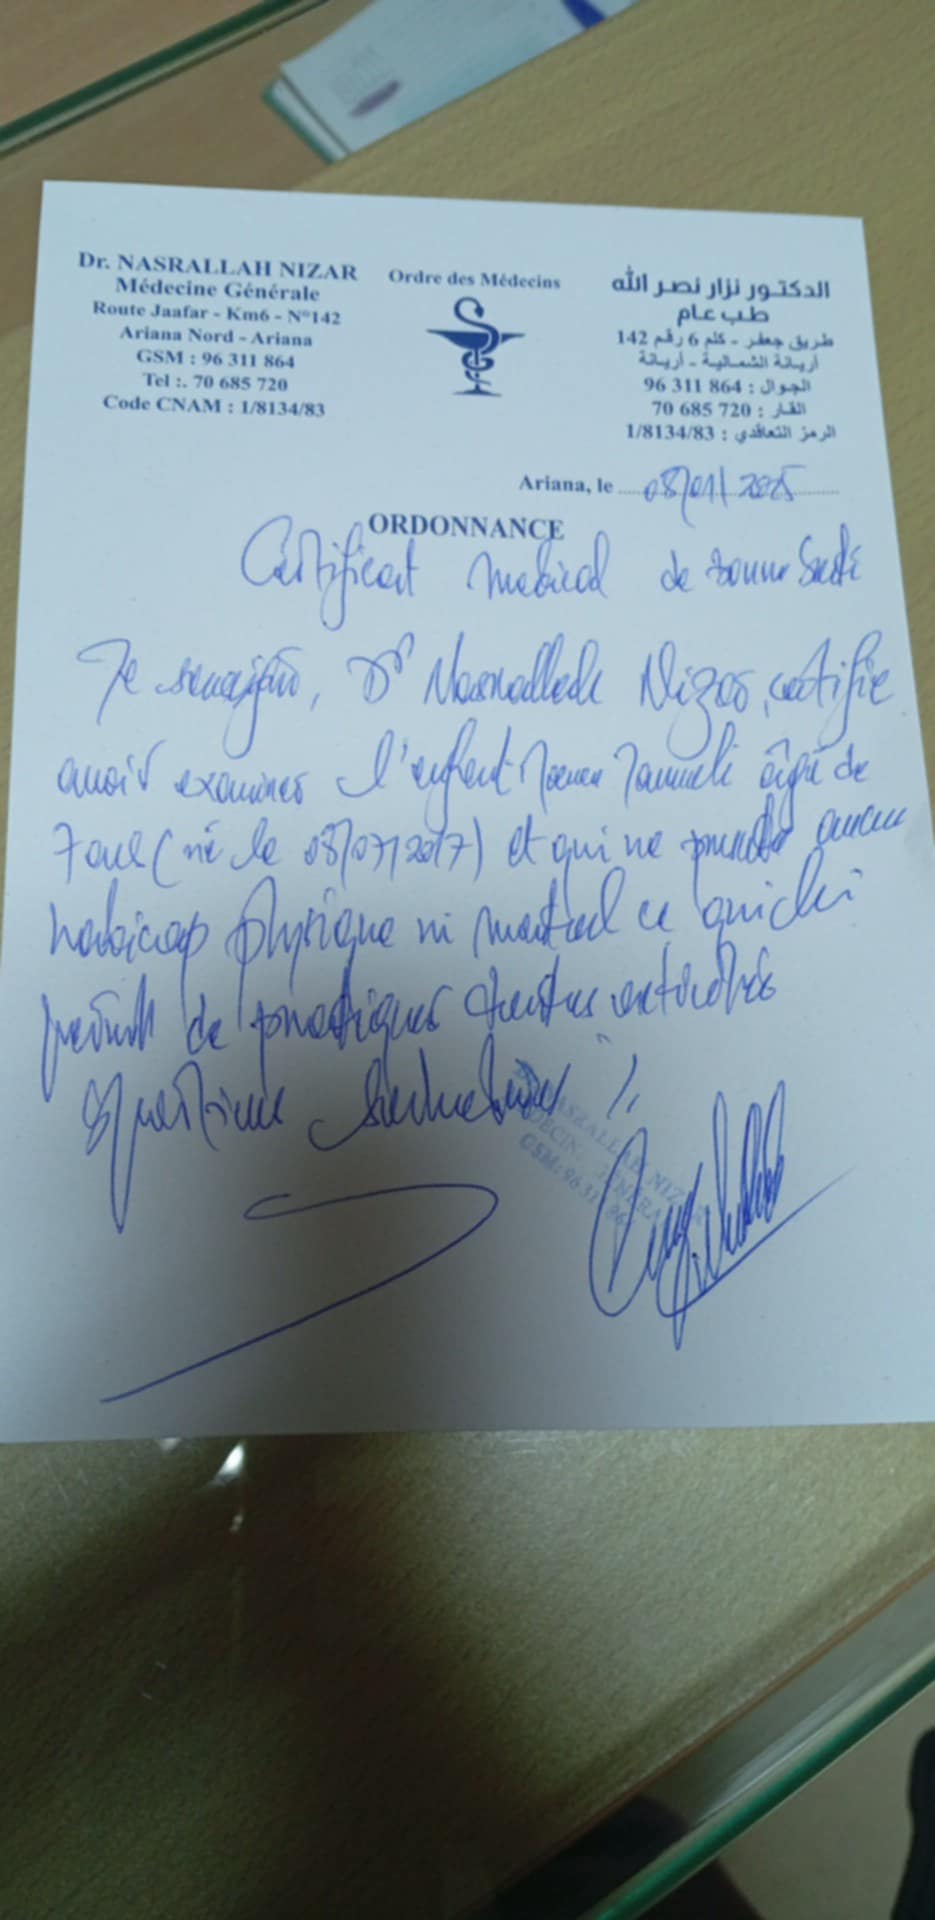 Dr. NASRALLAH NIZAR
Médecine Générale
Route Jaafar - Km6 - N°142
Ariana Nord - Ariana
GSM : 96 311 864
Tel :. 70 685 720
Code CNAM : 1/8134/83
Ordre des Médecins
الدكتور نزار نصر الله
طب عام
طريق جعفر - كلم 6 رقم 142
أريانة الشمالية - أريانة
الجوال : 864 311 96
القار : 720 685 70
الرمز التعاقدي : 1/8134/83
Ariana, le 08/01/2025
ORDONNANCE
Certificat medical de bonne Santé
Je soussigné, Dr Nasrallah Nizar, certifie
avoir examiner l'enfant âgé de
7 ans (né le 08/07/2017) et qui ne presente aucun
handicap physique ni mental ce qui lui
permet de pratiquer toutes activités
sportives
DR NASRALLAH NIZAR
MEDECIN GENERAL
GSM: 96 311 864